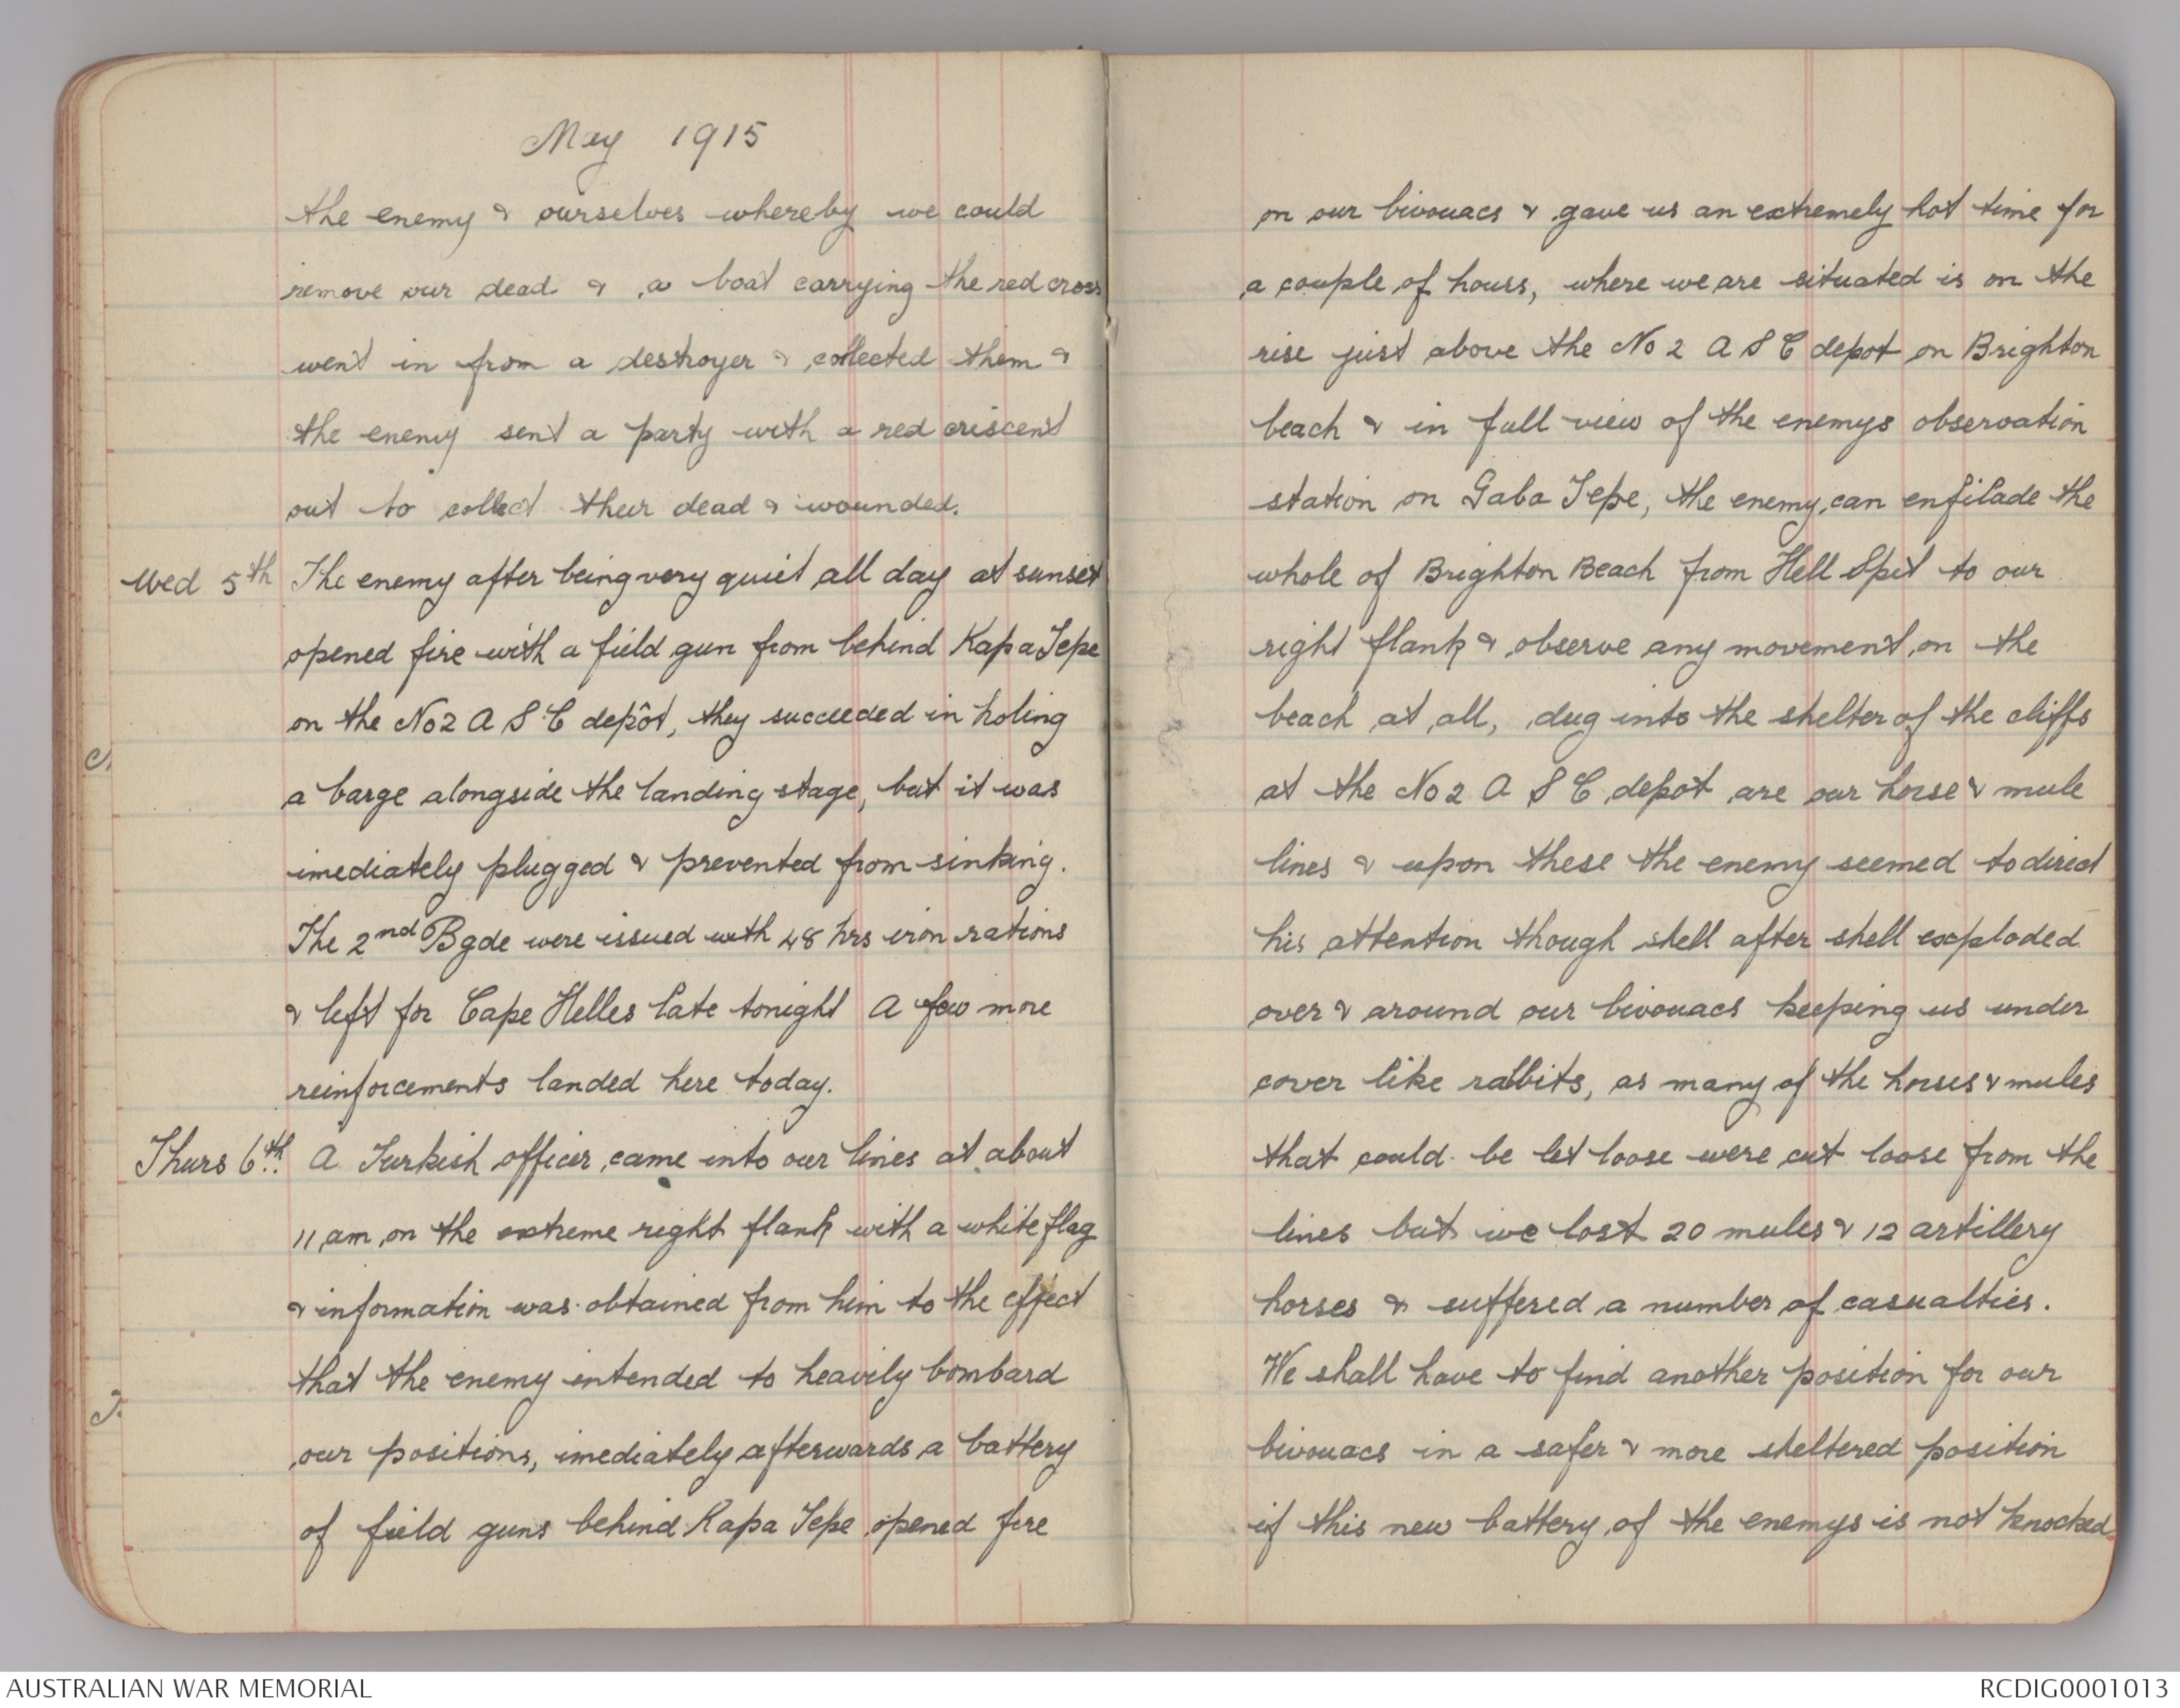 May 1915
the enemy & ourselves whereby we could
remove our dead & a boat carrying the red cross
went in from a destroyer & collected them &
the enemy sent a party with a red criscent
out to collect their dead & wounded.
Wed 5th The enemy after being very quiet all day at sunset
opened fire with a field gun from behind Kapa Tepe
on the No 2 A S C depôt, they succeeded in holing
a barge alongside the landing stage, but it was
imediately plugged & prevented from sinking.
The 2nd Bgde were issued with 48 hrs iron rations
& left for Cape Helles late tonight A few more
reinforcements landed here today.
Thurs 6th. A Turkish officer came into our lines at about
11 am on the extreme right flank with a white flag
& information was obtained from him to the effect
that the enemy intended to heavily bombard
our positions, imediately afterwards a battery
of field guns behind Kapa Tepe opened fire
on our bivouacs & gave us an extremely hot time for
a couple of hours, where we are situated is on the
rise just above the No 2 A S C depot on Brighton
beach & in full view of the enemys observation
station on Gaba Tepe, the enemy can enfilade the
whole of Brighton Beach from Hell Spit to our
right flank & observe any movement on the
beach at all, dug into the shelter of the cliffs
at the No 2 A S C depot are our horse & mule
lines & upon these the enemy seemed to direct
his attention though shell after shell exploded
over & around our bivouacs keeping us under
cover like rabbits, as many of the horses & mules
that could be let loose were cut loose from the
lines but we lost 20 mules & 12 artillery
horses & suffered a number of casualties.
We shall have to find another position for our
bivouacs in a safer & more sheltered position
if this new battery of the enemys is not knocked
AUSTRALIAN WAR MEMORIAL
RCDIG0001013